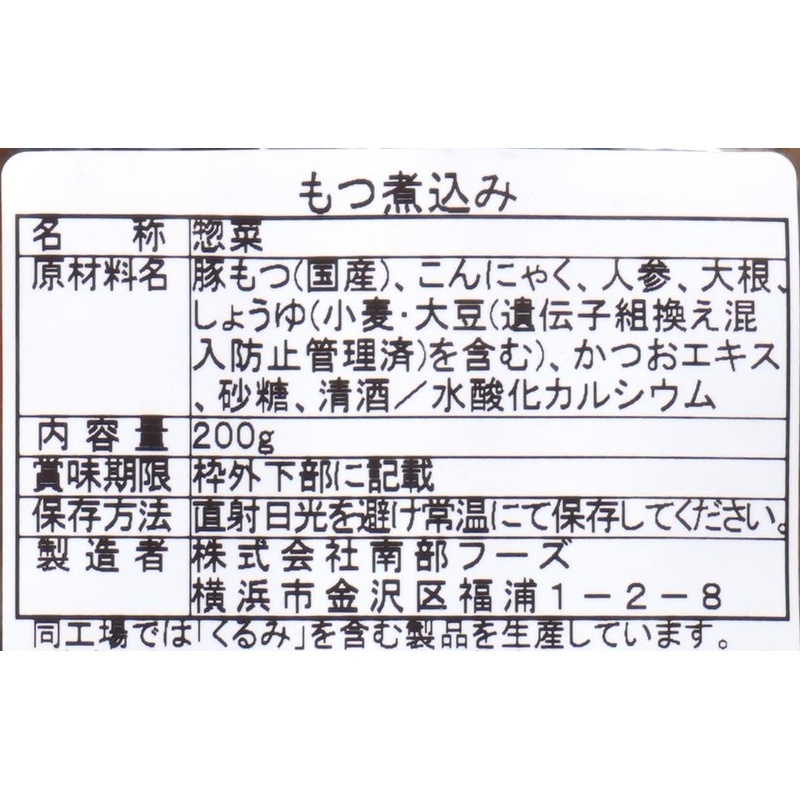 もつ煮込み
名称 惣菜
原材料名 豚もつ(国産)、こんにゃく、人参、大根、
しょうゆ(小麦・大豆(遺伝子組換え混
入防止管理済)を含む)、かつおエキス
、砂糖、清酒／水酸化カルシウム
内容量 200g
賞味期限 枠外下部に記載
保存方法 直射日光を避け常温にて保存してください。
製造者 株式会社南部フーズ
横浜市金沢区福浦1-2-8
同工場では「くるみ」を含む製品を生産しています。